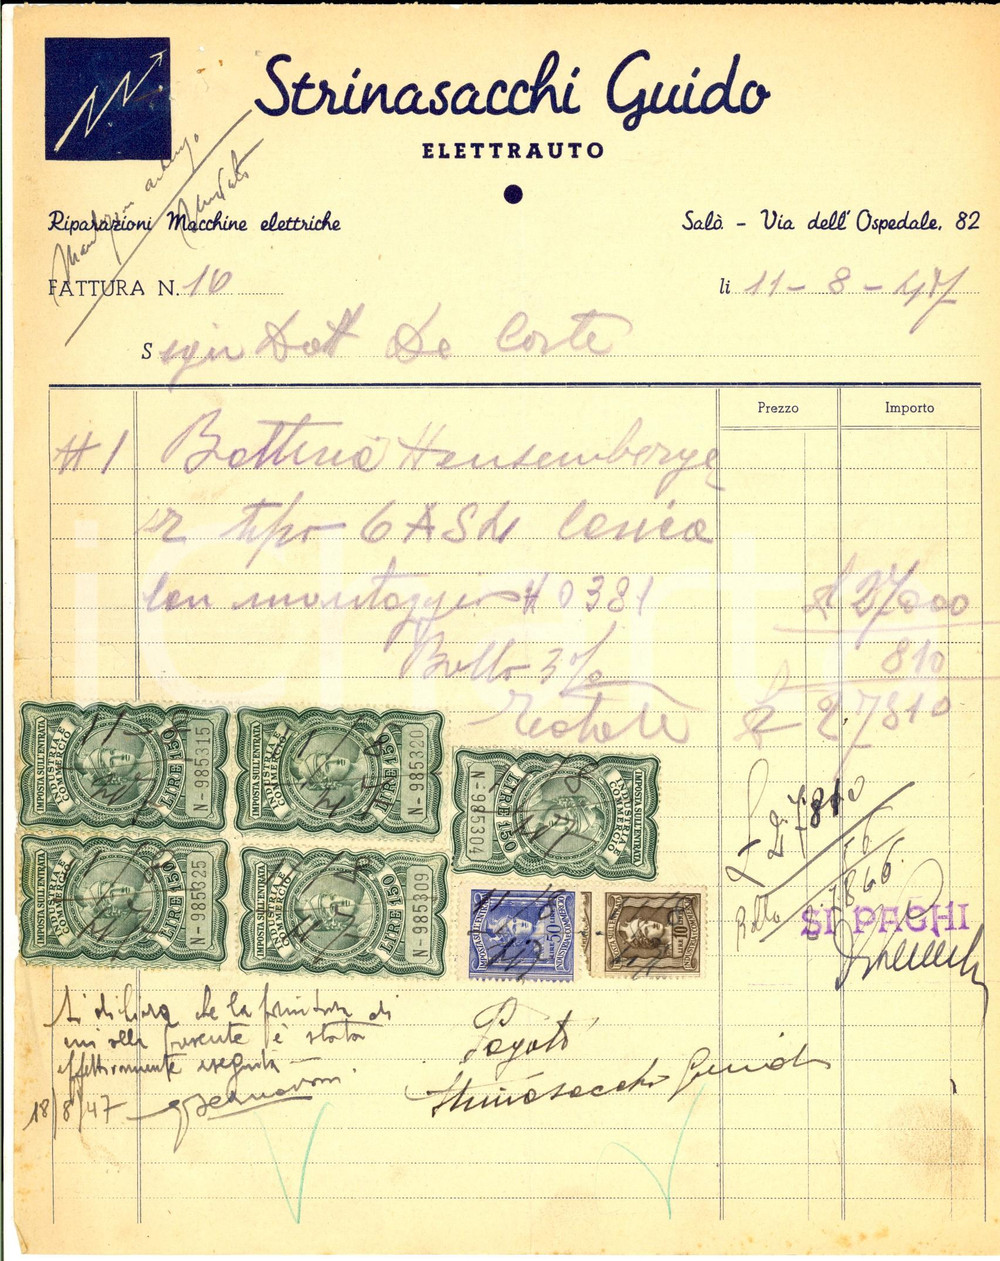 Strinasacchi Guido
ELETTRAUTO
Riparazioni Macchine elettriche
Salò - Via dell' Ospedale, 82
FATTURA N. 16
li 11-8-47
Signor Dott De Corte
Prezzo Importo
N 1 Batteria
tipo 6 AS
con montaggio N 0381 £ 27000
Bollo 3% 810
Totale £ 27810
IMPOSTA SULL'ENTRATA INDUSTRIA E COMMERCIO LIRE 150 N-985315
IMPOSTA SULL'ENTRATA INDUSTRIA E COMMERCIO LIRE 150 N-985320
IMPOSTA SULL'ENTRATA INDUSTRIA E COMMERCIO LIRE 150 N-985304
IMPOSTA SULL'ENTRATA INDUSTRIA E COMMERCIO LIRE 150 N-985325
IMPOSTA SULL'ENTRATA INDUSTRIA E COMMERCIO LIRE 150 N-985309
LIRE 50
LIRE 10
£ 27810
56
Bollo 27866
SI PAGHI
Si dichiara che la fornitura di
cui alla presente è stata
effettivamente eseguita
18/8/47
Pagato
Strinasacchi Guido